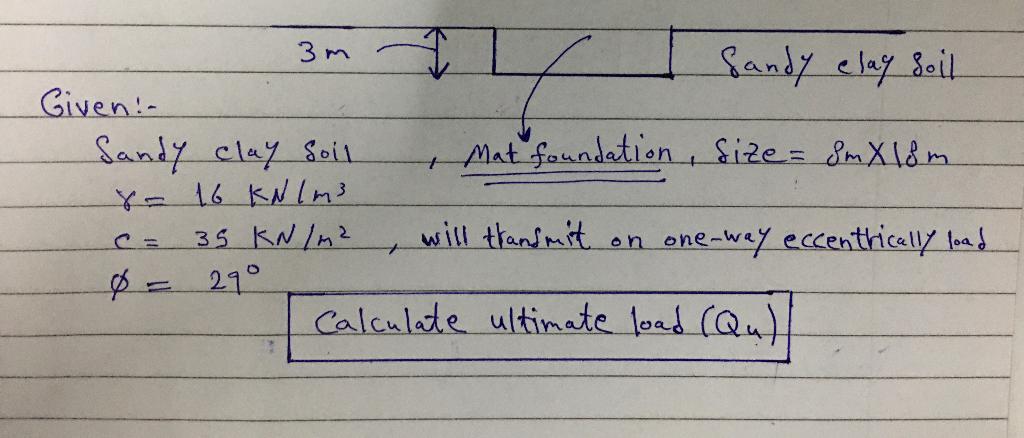 3m
Sandy clay Soil
Given:-
Sandy clay Soil , Mat foundation , Size = 8m X 18m
γ = 16 KN/m³
c = 35 KN/m² , will transmit on one-way eccentrically load
Ø = 29°
Calculate ultimate load (Qu)